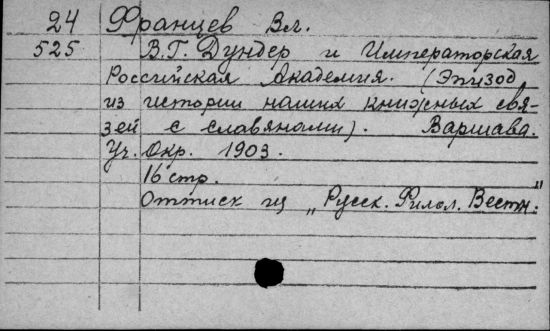 24 Францев Вл.
525 В.Г. Дундер и Императорская
Российская Академия. (Эпизод
из истории наших книжных свя-
зей с славянами). Варшава.
Уч. Окр. 1903.
16 стр.
Оттиск из „Русск. Филол. Вестн."